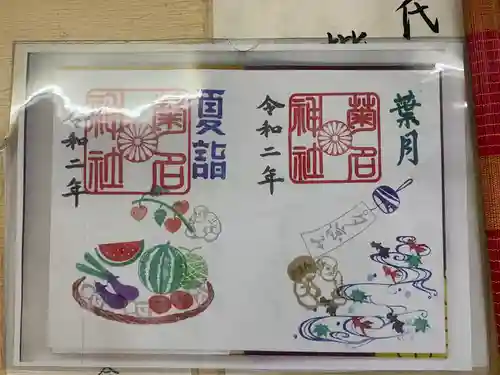 代
葉月
菊名
神社
令和二年
夏詣
菊名
神社
令和二年